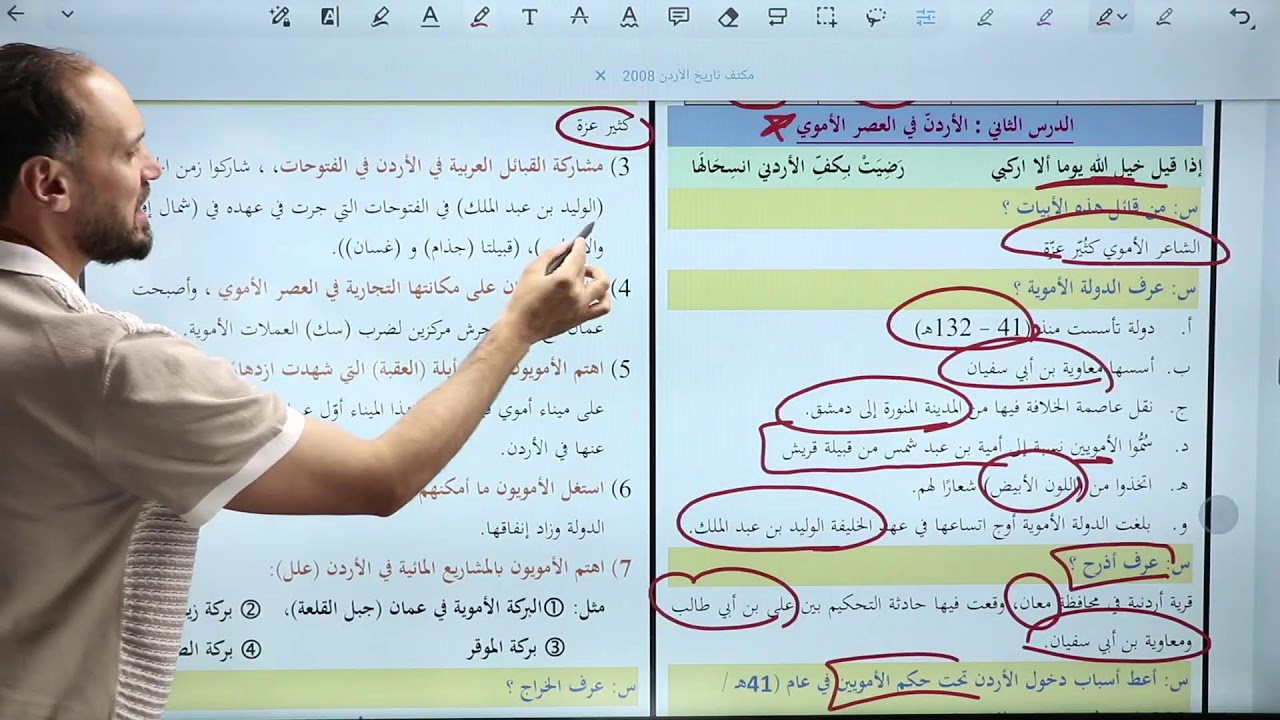 مكثف تاريخ الأردن 2008
الدرس الثاني : الأردنّ في العصر الأموي
إذا قيل خيل الله يوما ألا اركبي رَضِيَتْ بكفِّ الأردني انسِحَالهَا
س: من قائل هذه الأبيات ؟
الشاعر الأموي كثُيّر عزّة
س: عرف الدولة الأموية ؟
أ. دولة تأسست منذ (41 – 132هـ)
ب. أسسها معاوية بن أبي سفيان
ج. نقل عاصمة الخلافة فيها من المدينة المنورة إلى دمشق.
د. سُمُّوا الأمويين نسبة إلى أمية بن عبد شمس من قبيلة قريش
هـ. اتخذوا من (اللون الأبيض) شعارًا لهم.
و. بلغت الدولة الأموية أوج اتساعها في عهد الخليفة الوليد بن عبد الملك.
س: عرف أذرح ؟
قرية أردنية في محافظة معان، وقعت فيها حادثة التحكيم بين علي بن أبي طالب
ومعاوية بن أبي سفيان.
س: أعط أسباب دخول الأردن تحت حكم الأمويين في عام (41هـ /
كثير عزة
3) مشاركة القبائل العربية في الأردن في الفتوحات، ، شاركوا زمن
(الوليد بن عبد الملك) في الفتوحات التي جرت في عهده في (شمال
)، (قبيلتا (جذام) و (غسان)).
4) على مكانتها التجارية في العصر الأموي ، وأصبحت
عمان جرش مركزين لضرب (سك) العملات الأموية.
5) اهتم الأمويون أيلة (العقبة) التي شهدت
على ميناء أموي هذا الميناء أوّل
عنها في الأردن.
6) استغل الأمويون ما أمكنهم
الدولة وزاد إنفاقها.
7) اهتم الأمويون بالمشاريع المائية في الأردن (علل):
مثل: ① البركة الأموية في عمان (جبل القلعة)، ② بركة
③ بركة الموقر ④ بركة
س: عرف الخراج ؟